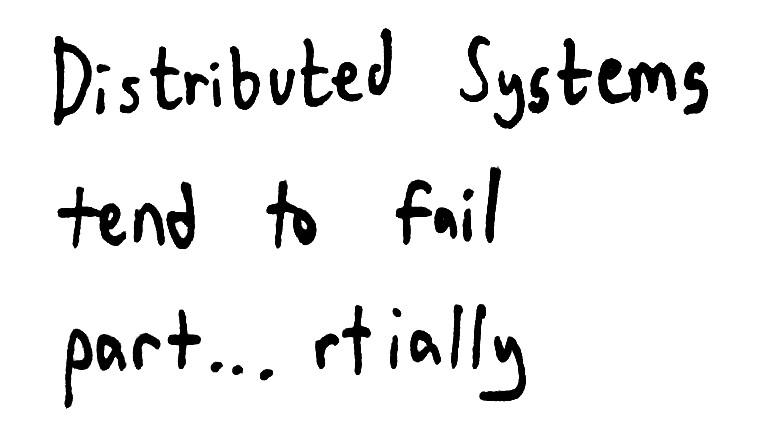 Distributed Systems
tend to fail
part... rtially